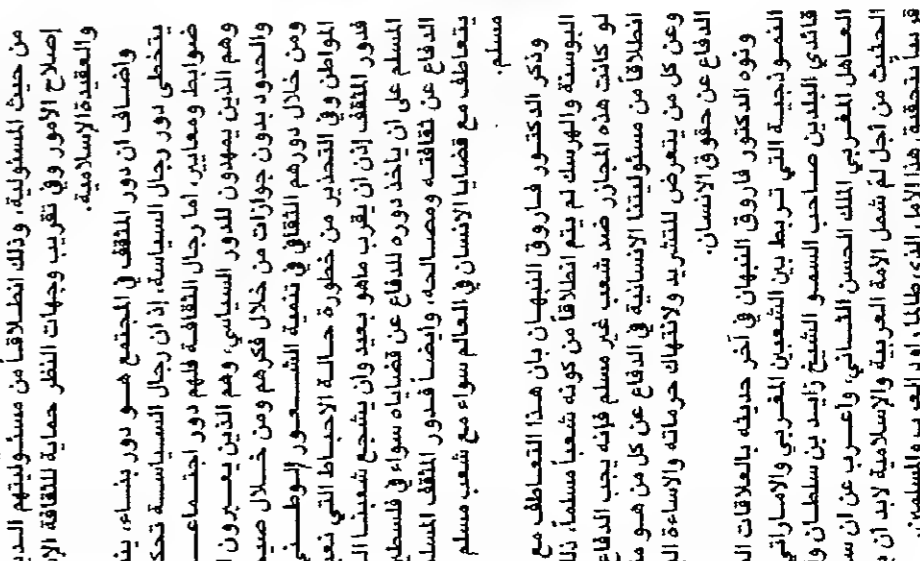 من حيث المسئولية، وذلك انطلاقاً من مسئوليتهم
إصلاح الأمور وفي تقريب وجهات النظر حماية للثقافة
والعقيدة الإسلامية.
واضاف ان دور المثقف في المجتمع هو دور بناء،
يتخطى دور رجال السياسة، إذ ان رجال السياسة
ضوابط ومعايير، اما رجال الثقافة فلهم دور
وهم الذين يمهدون للدور السياسي، وهم الذين يعبرون
والحدود بدون جوازات من خلال فكرهم ومن خلال
ومن خلال دورهم الثقافي في تنمية الشعور الوطني
المواطن وفي التحذير من خطورة حالة الاحباط التي
فدور المثقف إذن ان يقرب ماهو بعيد وان يشجع شعبنا
المسلم على ان ياخذ دوره للدفاع عن قضاياه سواء في
الدفاع عن ثقافته ومصالحه، وايضاً فدور المثقف
يتعاطف مع قضايا الانسان في العالم سواء مع شعب مسلم
مسلم.
وذكر الدكتور فاروق النبهان بان هذا التعاطف مع
البوسنة والهرسك لم يتم انطلاقاً من كونه شعباً مسلماً،
لو كانت هذه المجازر ضد شعب غير مسلم فإنه يجب
انطلاقا من مسئوليتنا الانسانية في الدفاع عن كل من هو
وعن كل من يتعرض للتشريد ولانتهاك حرماته والاساءة
الدفاع عن حقوق الانسان.
ونوه الدكتور فاروق النبهان في آخر حديثه بالعلاقات
النموذجية التي تربط بين الشعبين المغربي والاماراتي
قائدي البلدين صاحب السمو الشيخ زايد بن سلطان
العاهل المغربي الملك الحسن الثاني، واعرب عن ان
الحثيث من اجل لم شمل الامة العربية والإسلامية لابد ان
هذا الأمل الذي طالما